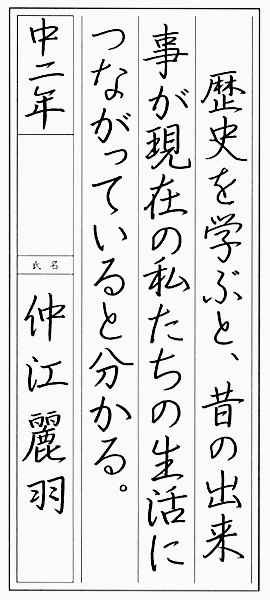 歴史を学ぶと、昔の出来
事が現在の私たちの生活に
つながっていると分かる。
中二年
氏名
仲江麗羽